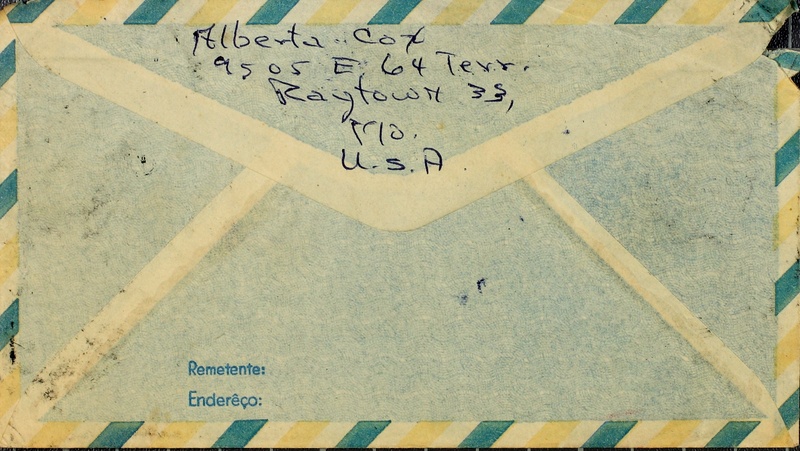 Alberta Cox
9505 E 64 Terr.
Raytown 33,
Mo.
U.S.A.
Remetente:
Enderêço: